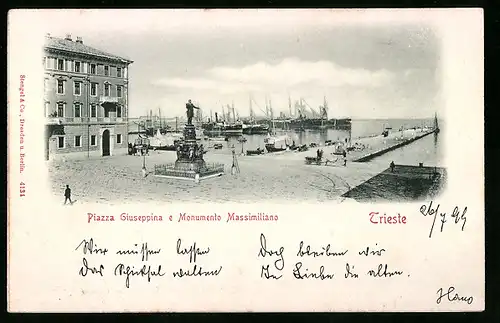 Stengel & Co., Dresden u. Berlin. 4134
Piazza Giuseppina e Monumento Massimiliano
Trieste
26/7 99
Wir müssen lassen
Das Schicksal walten
Doch bleiben wir
In Liebe die alten.
Hans